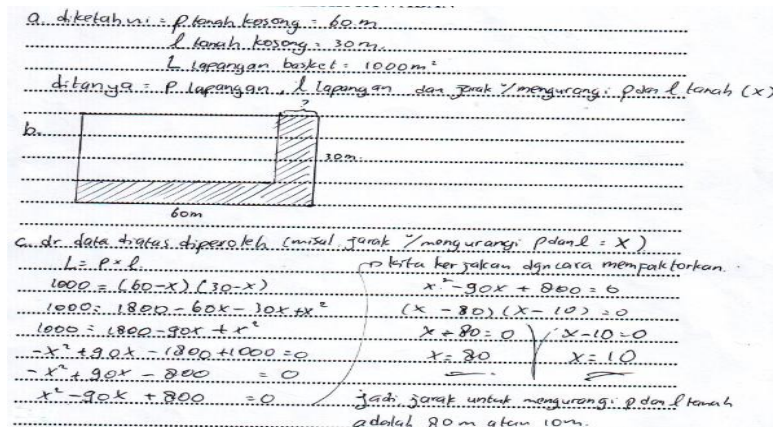 a. diketahui = p tanah kosong = 60 m
l tanah kosong = 30 m
L lapangan basket = 1000 m²
ditanya = p lapangan, l lapangan dan jarak u/ mengurangi p dan l tanah (x)
b.
?
30 m
60m
c. dr data diatas diperoleh (misal jarak u/ mengurangi p dan l = x)
L = p × l
1000 = (60-x) (30-x)
1000 = 1800 - 60x - 30x + x²
1000 = 1800 - 90x + x²
-x² + 90x - 1800 + 1000 = 0
-x² + 90x - 800 = 0
x² - 90x + 800 = 0
kita kerjakan dgn cara memfaktorkan.
x² - 90x + 800 = 0
(x - 80) (x - 10) = 0
x - 80 = 0 x - 10 = 0
x = 80 x = 10
jadi jarak untuk mengurangi p dan l tanah
adalah 80 m atau 10 m.